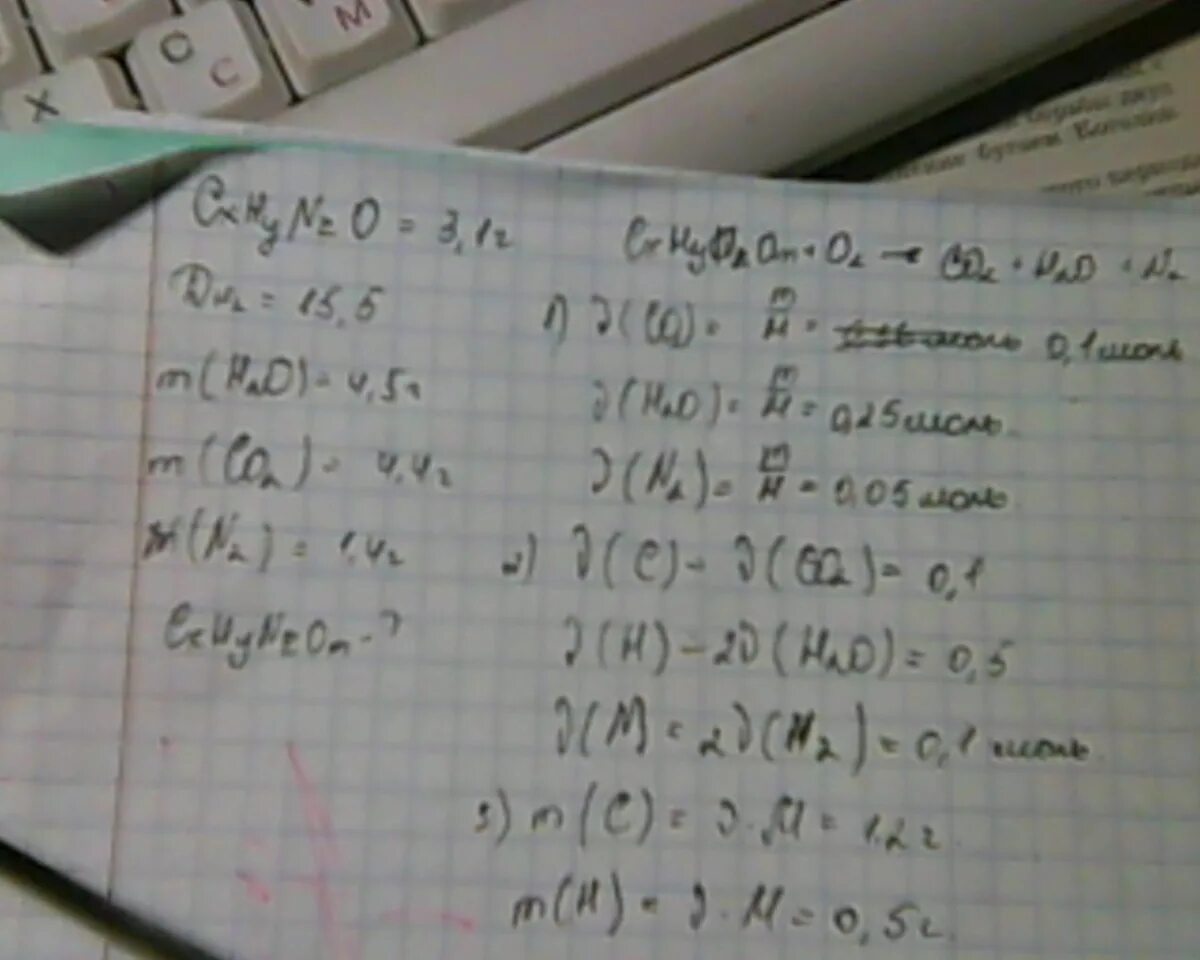 X
O
C
M
CxHyNzO = 3,1г
Dн₂ = 15,5
m(H₂O) = 4,5г
m(CO₂) = 4,4г
(N₂) = 1,4г
CxHyNzOn - ?
CxHy On + O₂ → CO₂ + H₂O + N₂
1) ν(CO₂) = m/M = 0,1 моль
ν(H₂O) = m/M = 0,25 моль
ν(N₂) = m/M = 0,05 моль
2) ν(C) = ν(CO₂) = 0,1
ν(H) = 2ν(H₂O) = 0,5
ν(N) = 2ν(N₂) = 0,1 моль
3) m(C) = ν·M = 1,2 г
m(H) = ν·M = 0,5г